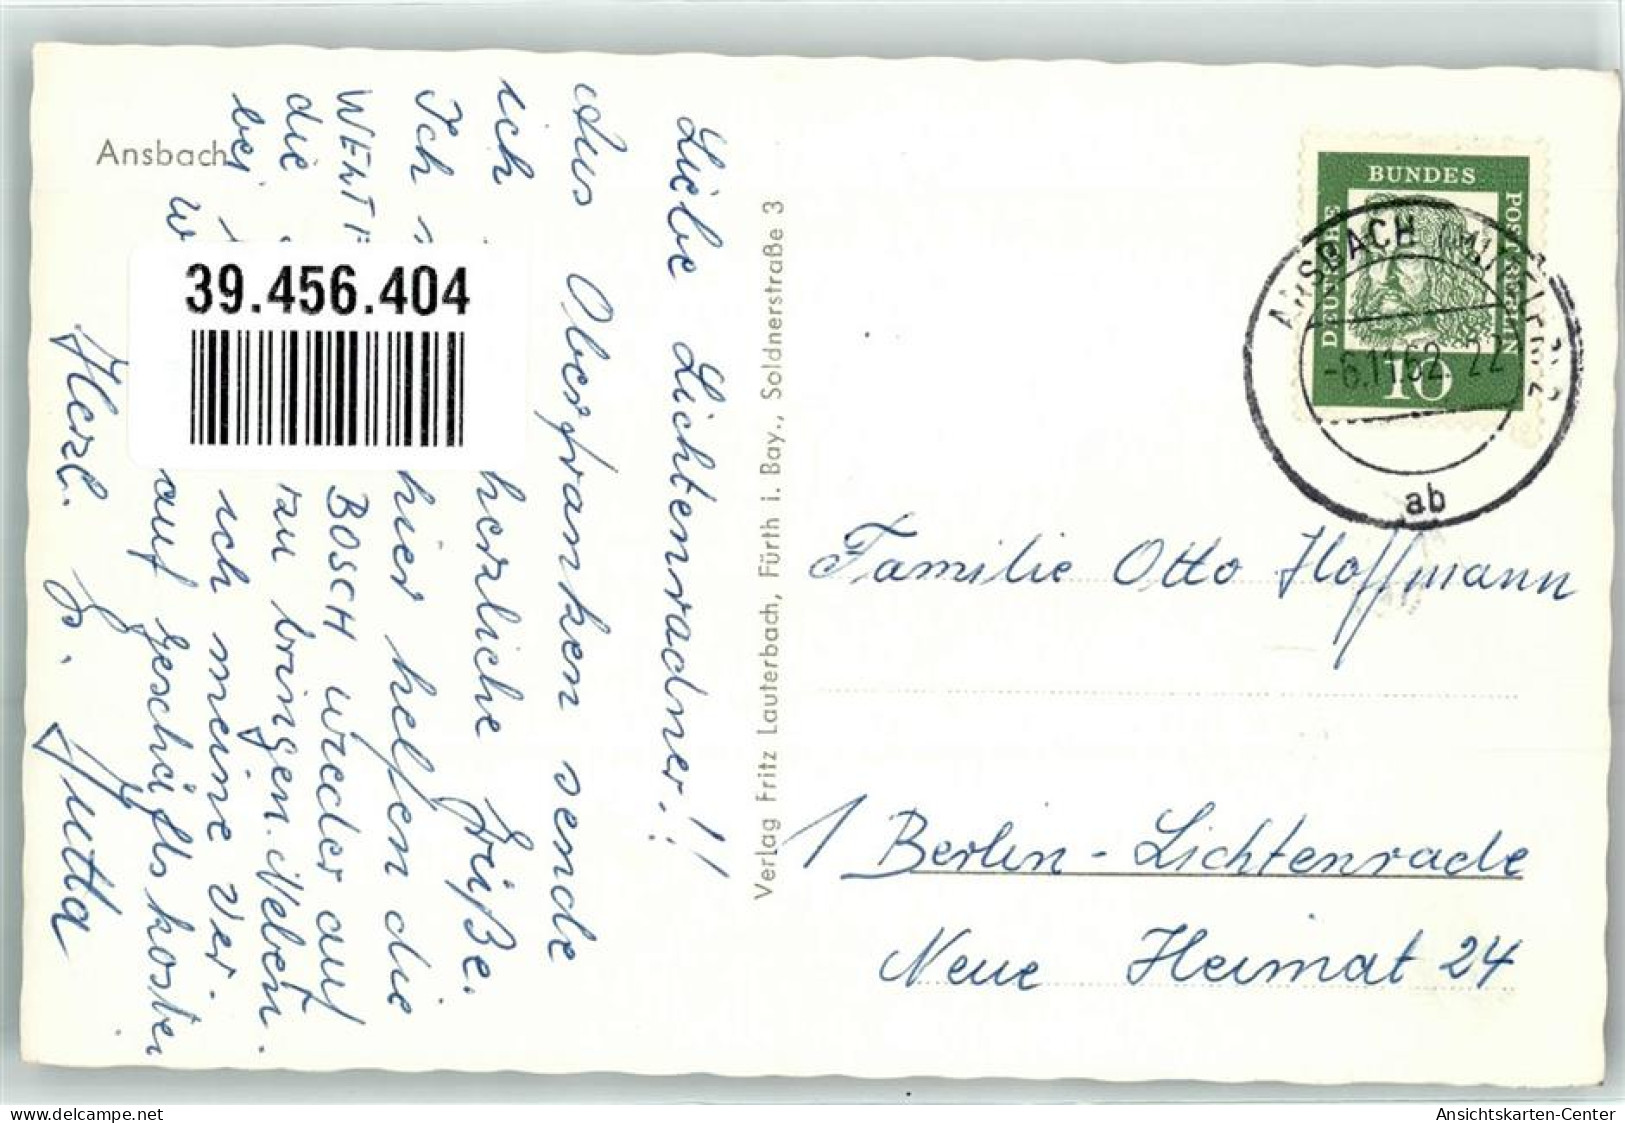 Ansbach
Liebe Lichtenradner!!
Aus Oberfranken sende
ich herzliche Grüße.
Ich hier helfen die
die BOSCH wieder auf
bei zu bringen. Neben
ich meine Ver-
auf Geschäftskosten
Herzl. Gr. Jutta
39.456.404
Verlag Fritz Lauterbach, Fürth i. Bay., Soldnerstraße 3
DEUTSCHE BUNDES POST BERLIN
10
ANSBACH (MITTELFR) 2
-6.11.62 22
ab
Familie Otto Hoffmann
1 Berlin-Lichtenrade
Neue Heimat 24
www.delcampe.net
Ansichtskarten-Center